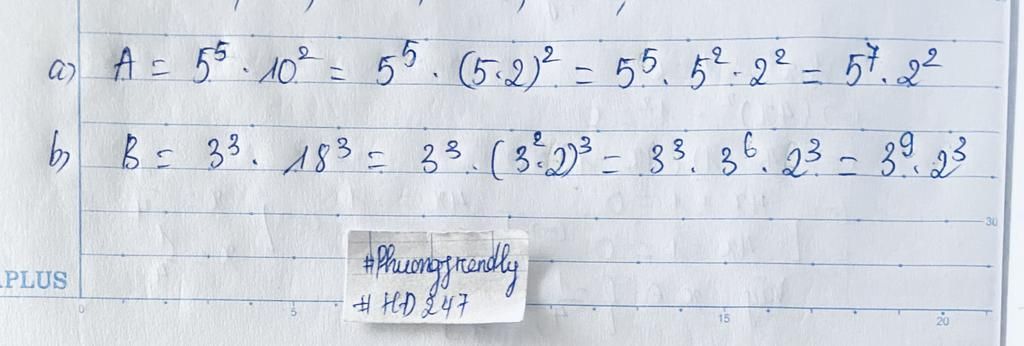 a) A = 5⁵ · 10² = 5⁵ · (5·2)² = 5⁵ · 5² · 2² = 5⁷ · 2²
b) B = 3³ · 18³ = 3³ · (3²·2)³ = 3³ · 3⁶ · 2³ = 3⁹ · 2³
30
#Phuongfrendly
#HD247
PLUS
0 5 15 20